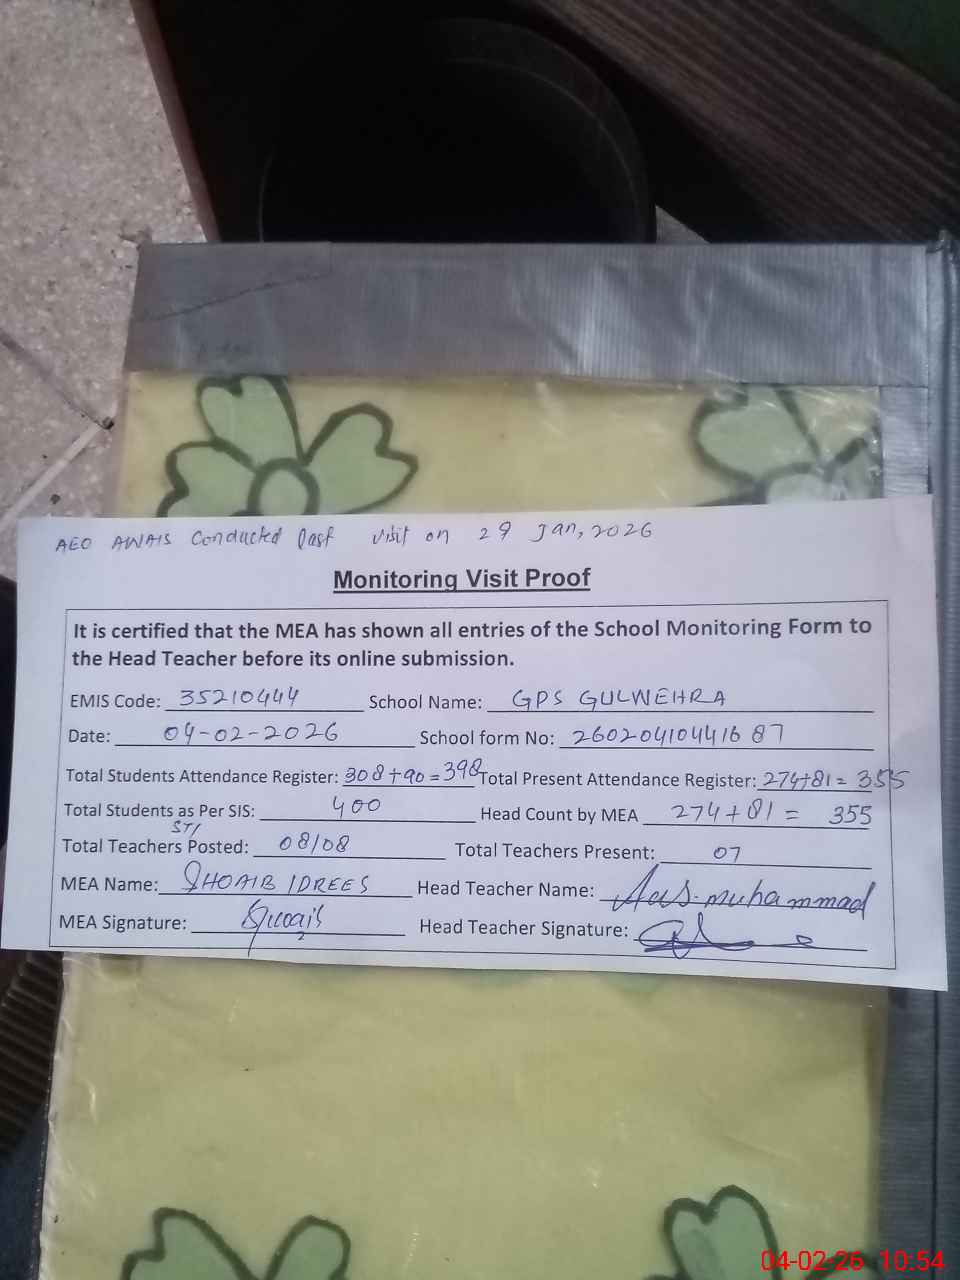 AEO AWAIS Conducted last visit on 29 Jan, 2026
Monitoring Visit Proof
It is certified that the MEA has shown all entries of the School Monitoring Form to
the Head Teacher before its online submission.
EMIS Code: 35210444 School Name: GPS GULWEHRA
Date: 04-02-2026 School form No: 26020410441687
Total Students Attendance Register: 308+90=398 Total Present Attendance Register: 274+81= 355
Total Students as Per SIS: 400 Head Count by MEA 274+81= 355
STI
Total Teachers Posted: 08/08 Total Teachers Present: 07
MEA Name: SHOAIB IDREES Head Teacher Name: muhammad
MEA Signature: Shoaib Head Teacher Signature:
04-02-26 10:54